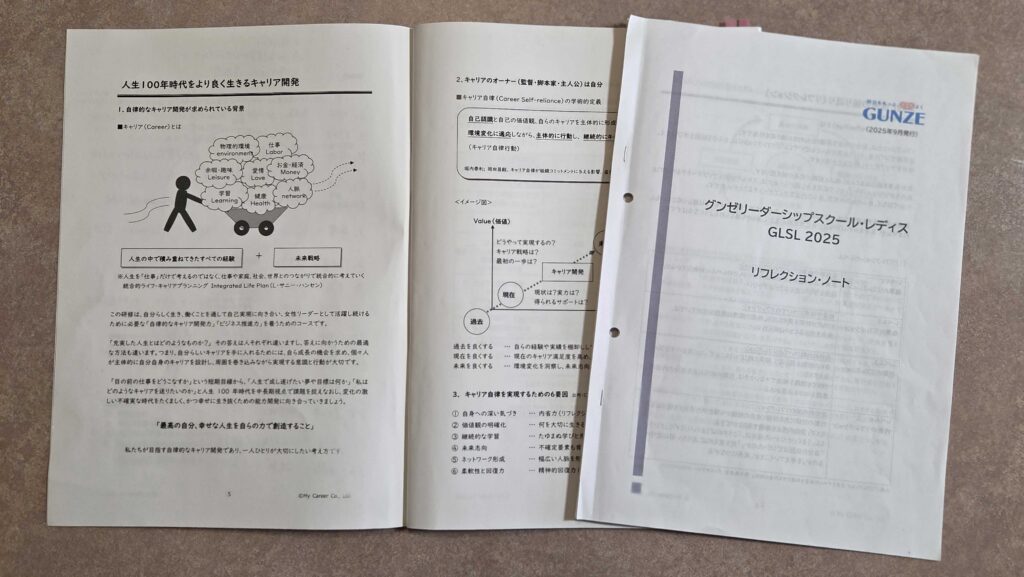 人生100年時代をより良く生きるキャリア開発
1. 自律的なキャリア開発が求められている背景
■キャリア(Career)とは
物理的環境
environment
仕事
Labor
余暇・趣味
Leisure
愛情
Love
お金・経済
Money
学習
Learning
健康
Health
人脈
network
人生の中で積み重ねてきたすべての経験
+
未来戦略
※人生を「仕事」だけで考えるのではなく、仕事や家庭、社会、世界とのつながりで統合的に考えていく
統合的ライフ・キャリアプランニング Integrated Life Plan (L・サニー・ハンセン)
この研修は、自分らしく生き、働くことを通して自己実現に向き合い、女性リーダーとして活躍し続ける
ために必要な「自律的なキャリア開発力」「ビジネス推進力」を養うためのコースです。
「充実した人生とはどのようなものか?」その答えは人それぞれ違いますし、答えに向かうための最適
な方法も違います。つまり、自分らしいキャリアを手に入れるためには、自ら成長の機会を求め、個々人
が主体的に自分自身のキャリアを設計し、周囲を巻き込みながら実現する意識と行動が大切です。
「目の前の仕事をどうこなすか」という短期目線から、「人生で成し遂げたい夢や目標は何か」「私は
どのようなキャリアを送りたいのか」と人生 100 年時代を中長期視点で課題を捉えなおし、変化の激
しい不確実な時代をたくましく、かつ幸せに生き抜くための能力開発に向き合っていきましょう。
「最高の自分、幸せな人生を自らの力で創造すること」
私たちが目指す自律的なキャリア開発であり、一人ひとりが大切にしたい考え方です
5
©My Career Co., Ltd.
2. キャリアのオーナー(監督・脚本家・主人公)は自分
■キャリア自律(Career Self-reliance)の学術的定義
自己認識と自己の価値観、自らのキャリアを主体的に形成
環境変化に適応しながら、主体的に行動し、継続的にキ
(キャリア自律行動)
堀内泰利、岡田昌毅、キャリア自律が組織コミットメントに与える影響、
<イメージ図>
Value(価値)
どうやって実現するの?
キャリア戦略は?
最初の一歩は?
キャリア開発
現在
現状は?実力は?
得られるサポートは?
過去
過去を良くする … 自らの経験や実績を棚卸しし
現在を良くする … 現在のキャリア満足度を高め、
未来を良くする … 環境変化を洞察し、未来志向
3. キャリア自律を実現するための6要因
① 自身への深い気づき … 内省力(リフレクシ
② 価値観の明確化 … 何を大切に生きる
③ 継続的な学習 … たゆまぬ学びと
④ 未来志向 … 不確定要素も
⑤ ネットワーク形成 … 幅広い人脈を
⑥ 柔軟性と回復力 … 精神的回復力
GUNZE
(2025年9月発行)
グンゼリーダーシップスクール・レディス
GLSL 2025
リフレクション・ノート